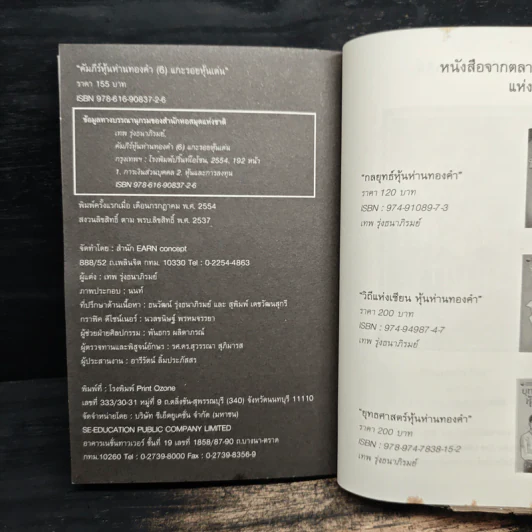 "คัมภีร์หุ้นห่านทองคำ (6) แกะรอยหุ้นเด่น"
ราคา 155 บาท
ISBN 978-616-90837-2-6
ข้อมูลทางบรรณานุกรมของสำนักหอสมุดแห่งชาติ
เทพ รุ่งธนาภิรมย์.
คัมภีร์หุ้นห่านทองคำ (6) แกะรอยหุ้นเด่น
กรุงเทพฯ : โรงพิมพ์ปริ้นท์โอโซน, 2554. 192 หน้า
1. การเงินส่วนบุคคล 2. หุ้นและการลงทุน
ISBN 978-616-90837-2-6
พิมพ์ครั้งแรกเมื่อ เดือนกรกฎาคม พ.ศ. 2554
สงวนลิขสิทธิ์ ตาม พรบ.ลิขสิทธิ์ พ.ศ. 2537
จัดทำโดย : สำนัก EARN concept
888/52 ถ.เพลินจิต กทม. 10330 Tel : 0-2254-4863
ผู้แต่ง : เทพ รุ่งธนาภิรมย์
ภาพประกอบ : นนท์
ที่ปรึกษาด้านเนื้อหา : ธนวัฒน์ รุ่งธนาภิรมย์ และ สุพิมพ์ เตชวัฒนสุกรี
กราฟิค ดีไซน์เนอร์ : นวสชนิษฐ์ พรหมจรรยา
ผู้ช่วยฝ่ายศิลปกรรม : พันธกร ผลิตาภรณ์
ผู้ตรวจทานและพิสูจน์อักษร : รศ.ดร.สุวรรณา สุภิมารส
ผู้ประสานงาน : อารีรัตน์ ลิ้มประภัสสร
พิมพ์ที่ : โรงพิมพ์ Print Ozone
เลขที่ 333/30-31 หมู่ที่ 9 ถ.ตลิ่งชัน-สุพรรณบุรี (340) จังหวัดนนทบุรี 11110
จัดจำหน่ายโดย : บริษัท ซีเอ็ดยูเคชั่น จำกัด (มหาชน)
SE-EDUCATION PUBLIC COMPANY LIMITED
อาคารเนชั่นทาวเวอร์ ชั้นที่ 19 เลขที่ 1858/87-90 ถ.บางนา-ตราด
กทม.10260 Tel : 0-2739-8000 Fax : 0-2739-8356-9
หนังสือจากตลา
แห่ง
"กลยุทธ์หุ้นห่านทองคำ"
ราคา 120 บาท
ISBN : 974-91089-7-3
เทพ รุ่งธนาภิรมย์
"วิถีแห่งเซียน หุ้นห่านทองคำ"
ราคา 200 บาท
ISBN : 974-94987-4-7
เทพ รุ่งธนาภิรมย์
"ยุทธศาสตร์หุ้นห่านทองคำ"
ราคา 200 บาท
ISBN : 978-974-7838-15-2
เทพ รุ่งธนาภิรมย์